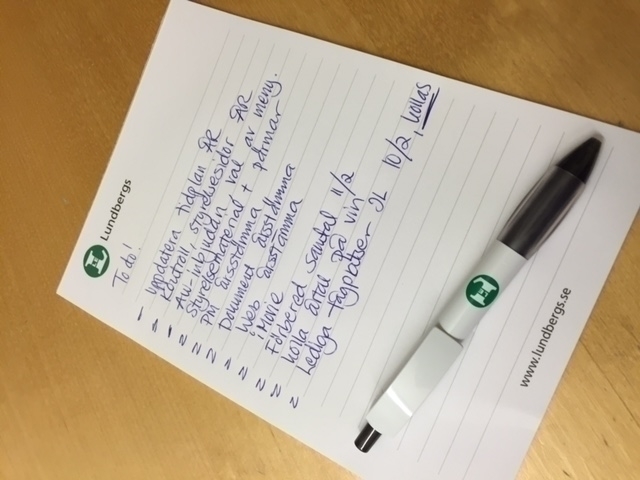 Lundbergs
To do!
- Uppdatera tidplan ÅR
- Kontroll, styrelsesidor ÅR
- AW-inbjudan, val av meny.
- Styrelsematerial + pärmar
- PM årsstämma
- Dokument årsstämma
- Web årsstämma
- iMovie
- Förbered samtal 11/2
- Kolla årtal på vin 1/2
- Lediga tågplatser JL 10/2, kollas
www.lundbergs.se